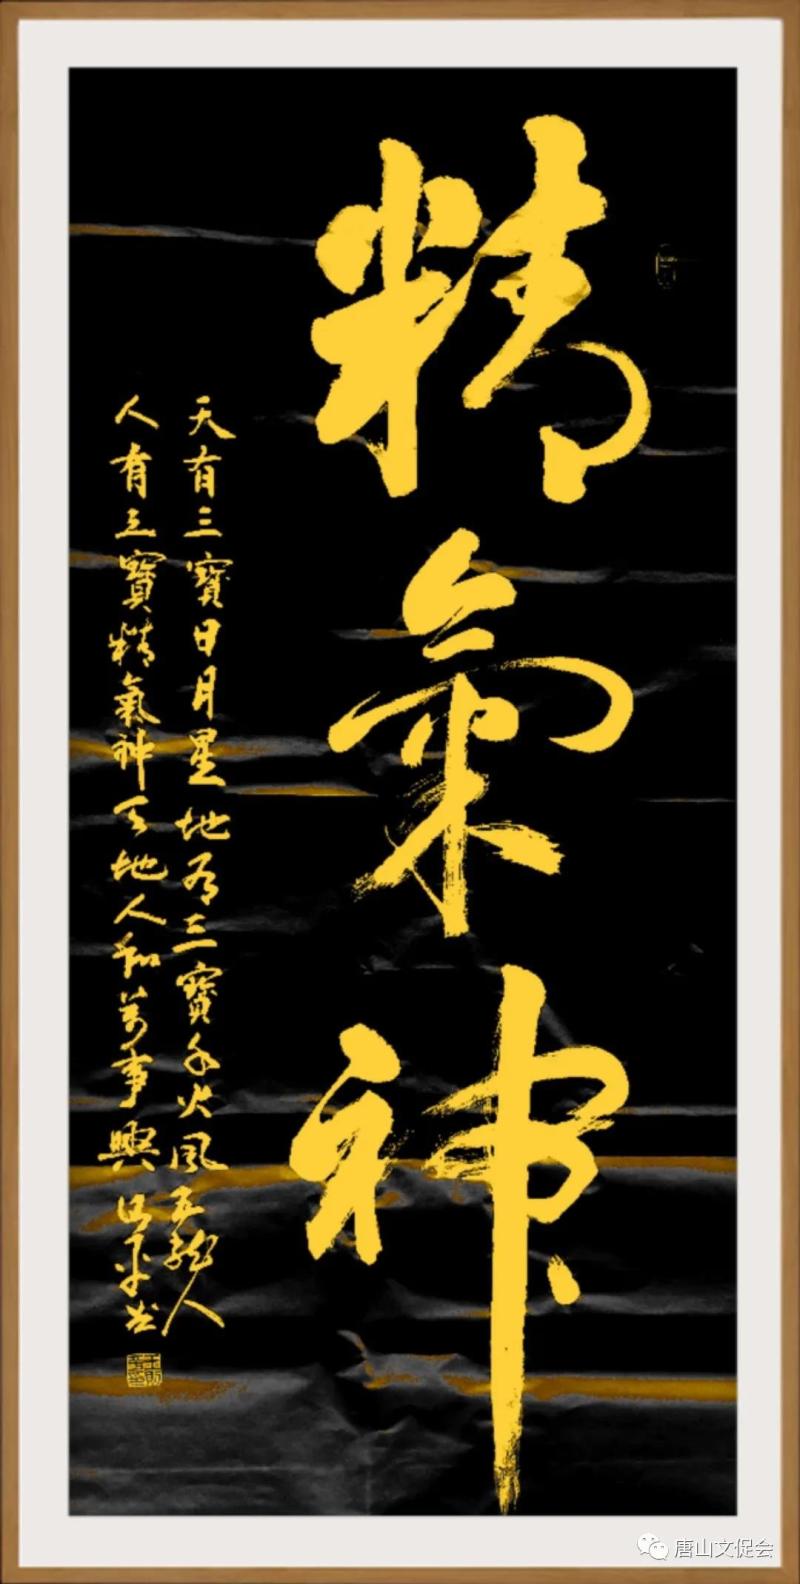 精氣神
天有三寶日月星地有三寶水火風
人有三寶精氣神天地人和萬事興
唐山文促会